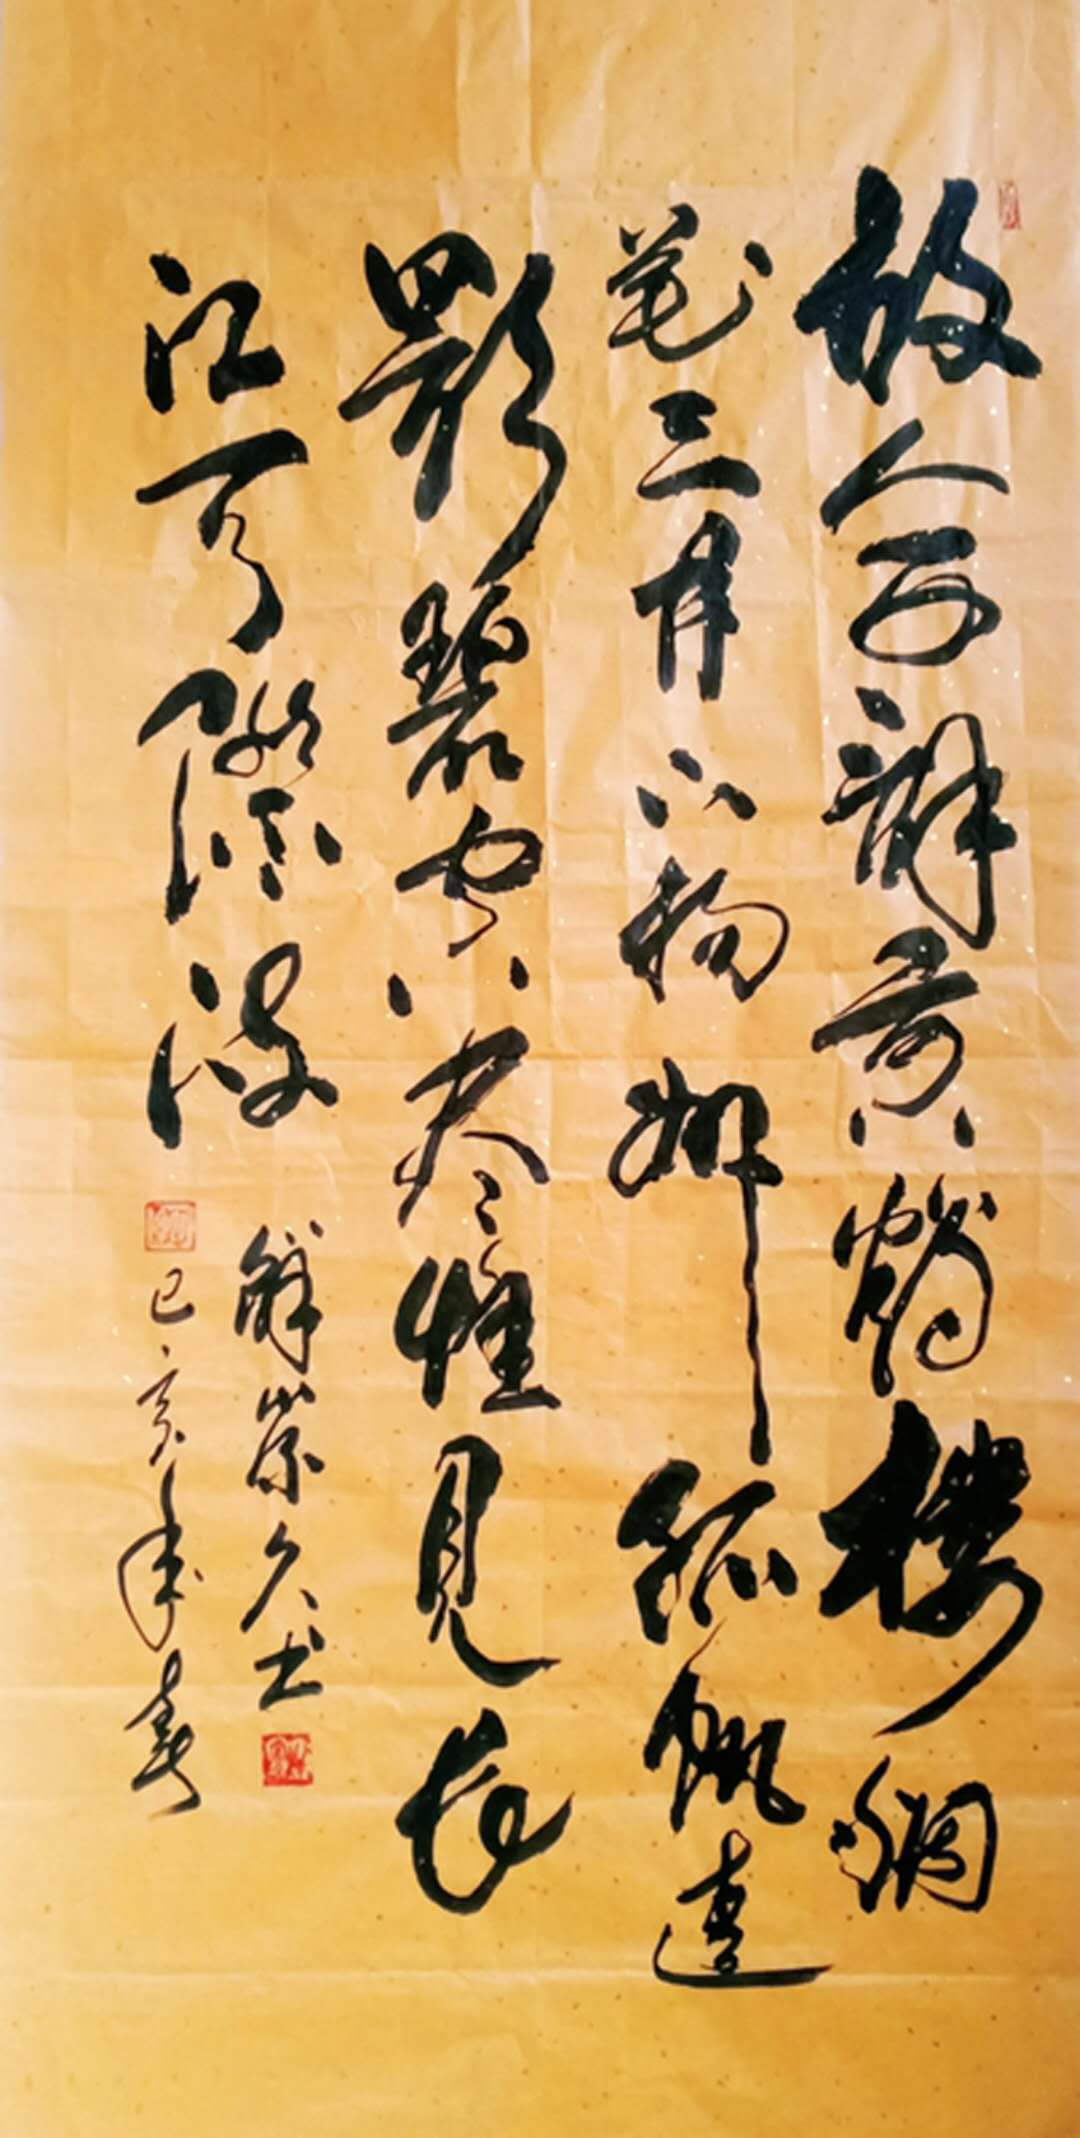 故人西辭黄鶴樓烟
花三月下揚州孤帆遠
影碧空尽惟見長
江天際流
解崇久书
己亥年春